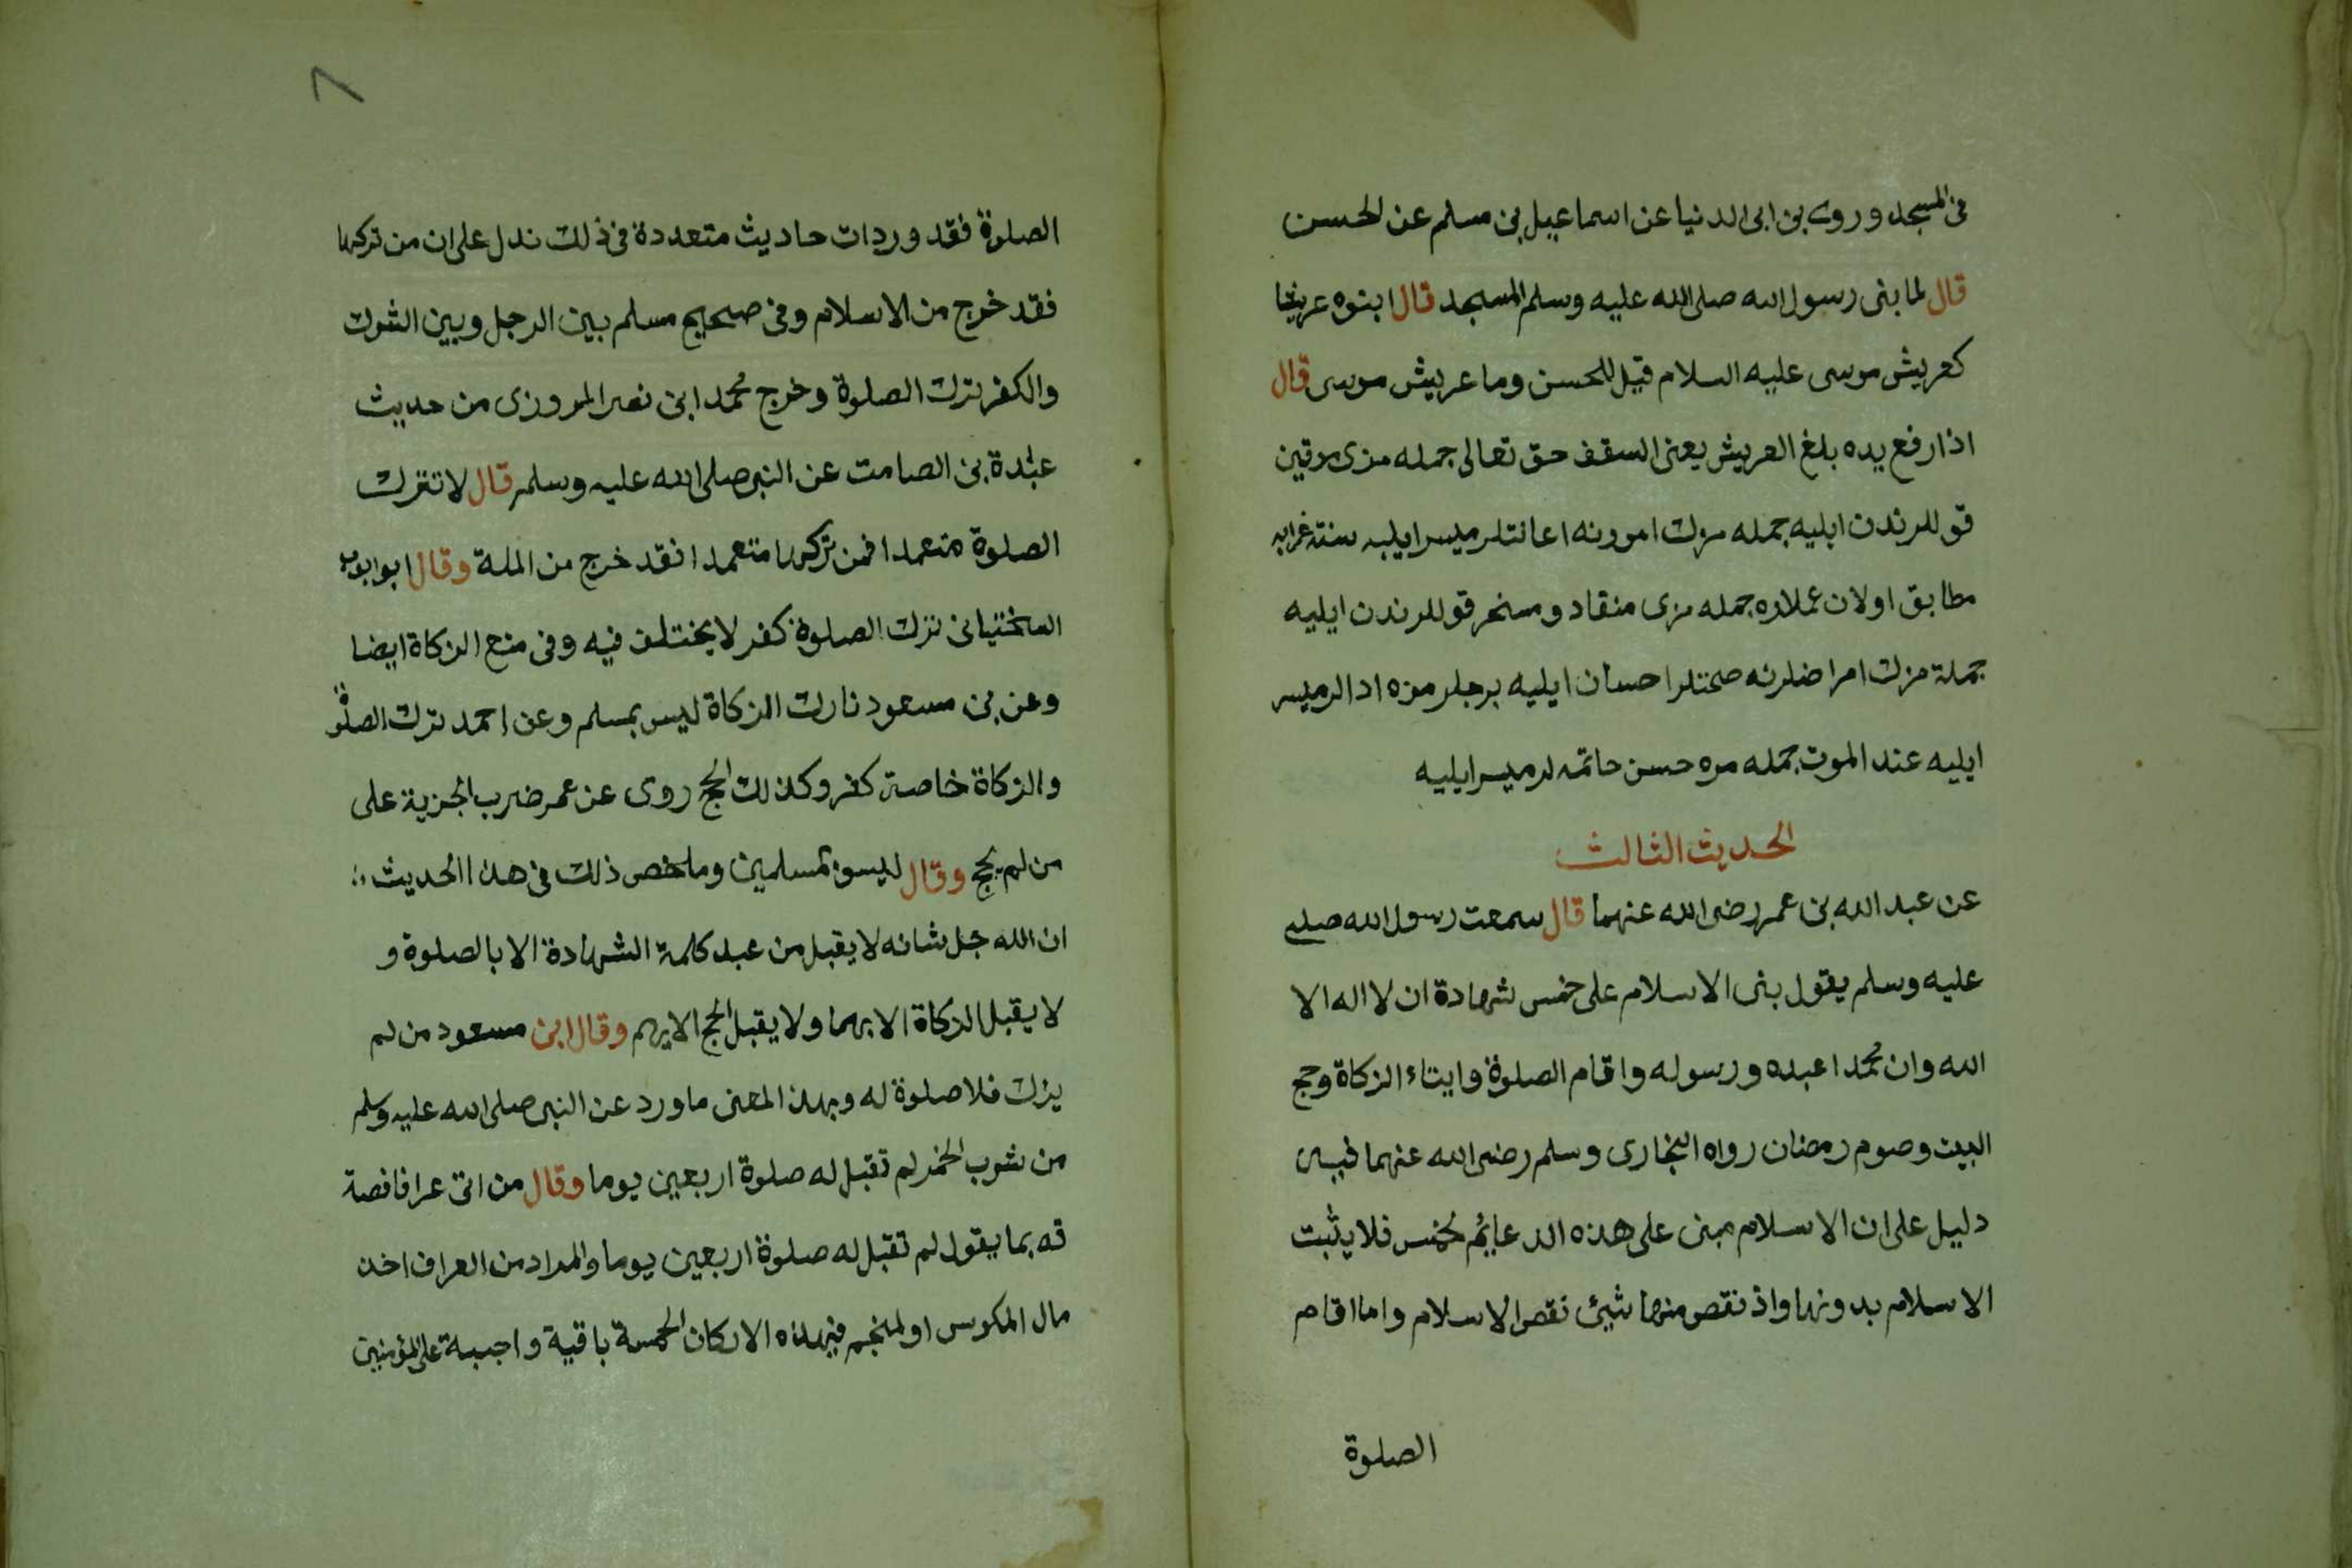 فى المسجد وروى بن ابى الدنيا عن اسماعيل بن مسلم عن الحسن
قال لما بنى رسول الله صلى الله عليه وسلم المسجد قال ابنوه عريشا
كعريش موسى عليه السلام قيل للحسن وما عريش موسى قال
اذا رفع يده بلغ العريش يعنى السقف حق تعالى جمله مزى
قوللرندن ايليه جمله مزك امورونه اعانتلر ميسر ايليه سنته
مطابق اولان عمللره جمله مزى منقاد ومسخر قوللرندن ايليه
جملة مزك امراضلرنه صحتلر احسان ايليه برجلر مزه ادالر ميسر
ايليه عند الموت جمله مزه حسن خاتمه لر ميسر ايليه
الحديث الثالث
عن عبد الله بن عمر رضى الله عنهما قال سمعت رسول الله صلى
عليه وسلم يقول بنى الاسلام على خمس شهادة ان لا اله الا
الله وان محمدا عبده ورسوله واقام الصلوة وايتاء الزكاة وحج
البيت وصوم رمضان رواه البخارى وسلم رضى الله عنهما فيه
دليل على ان الاسلام مبنى على هذه الدعايم لخمس فلا يثبت
الاسلام بدونها واذ نقص منها شيئ نقص الاسلام واما اقام
الصلوة
٨
الصلوة فقد وردات حاديث متعددة فى ذلك تدل على ان من تركها
فقد خرج من الاسلام وفى صحيح مسلم بين الرجل وبين الشرك
والكفر ترك الصلوة وخرج محمد ابن نصر المروزى من حديث
عبادة بن الصامت عن النبى صلى الله عليه وسلم قال لا تترك
الصلوة متعمدا فمن تركها متعمدا فقد خرج من الملة وقال ابو ايوب
السختيانى ترك الصلوة كفر لا يختلف فيه وفى منع الزكاة ايضا
وعن بن مسعود تارك الزكاة ليس بمسلم وعن احمد ترك الصلوة
والزكاة خاصة كفر وكذلك الحج روى عن عمر ضرب الجزية على
من لم يحج وقال ليسو بمسلمين وملخص ذلك فى هذا الحديث
ان الله جل شانه لا يقبل من عبد كلمة الشهادة الا بالصلوة و
لا يقبل الزكاة الا بهما ولا يقبل الحج الا بهم وقال ابن مسعود من لم
يزك فلا صلوة له وبهذ المعنى ما ورد عن النبى صلى الله عليه وسلم
من شرب الخمر لم تقبل له صلوة اربعين يوما وقال من اتى عرافا فصد
قه بما يقول لم تقبل له صلوة اربعين يوما والمراد من العراف اخذ
مال المكوس او لمنجم فهذه الاركان الخمسة باقية واجبة على المؤمنين